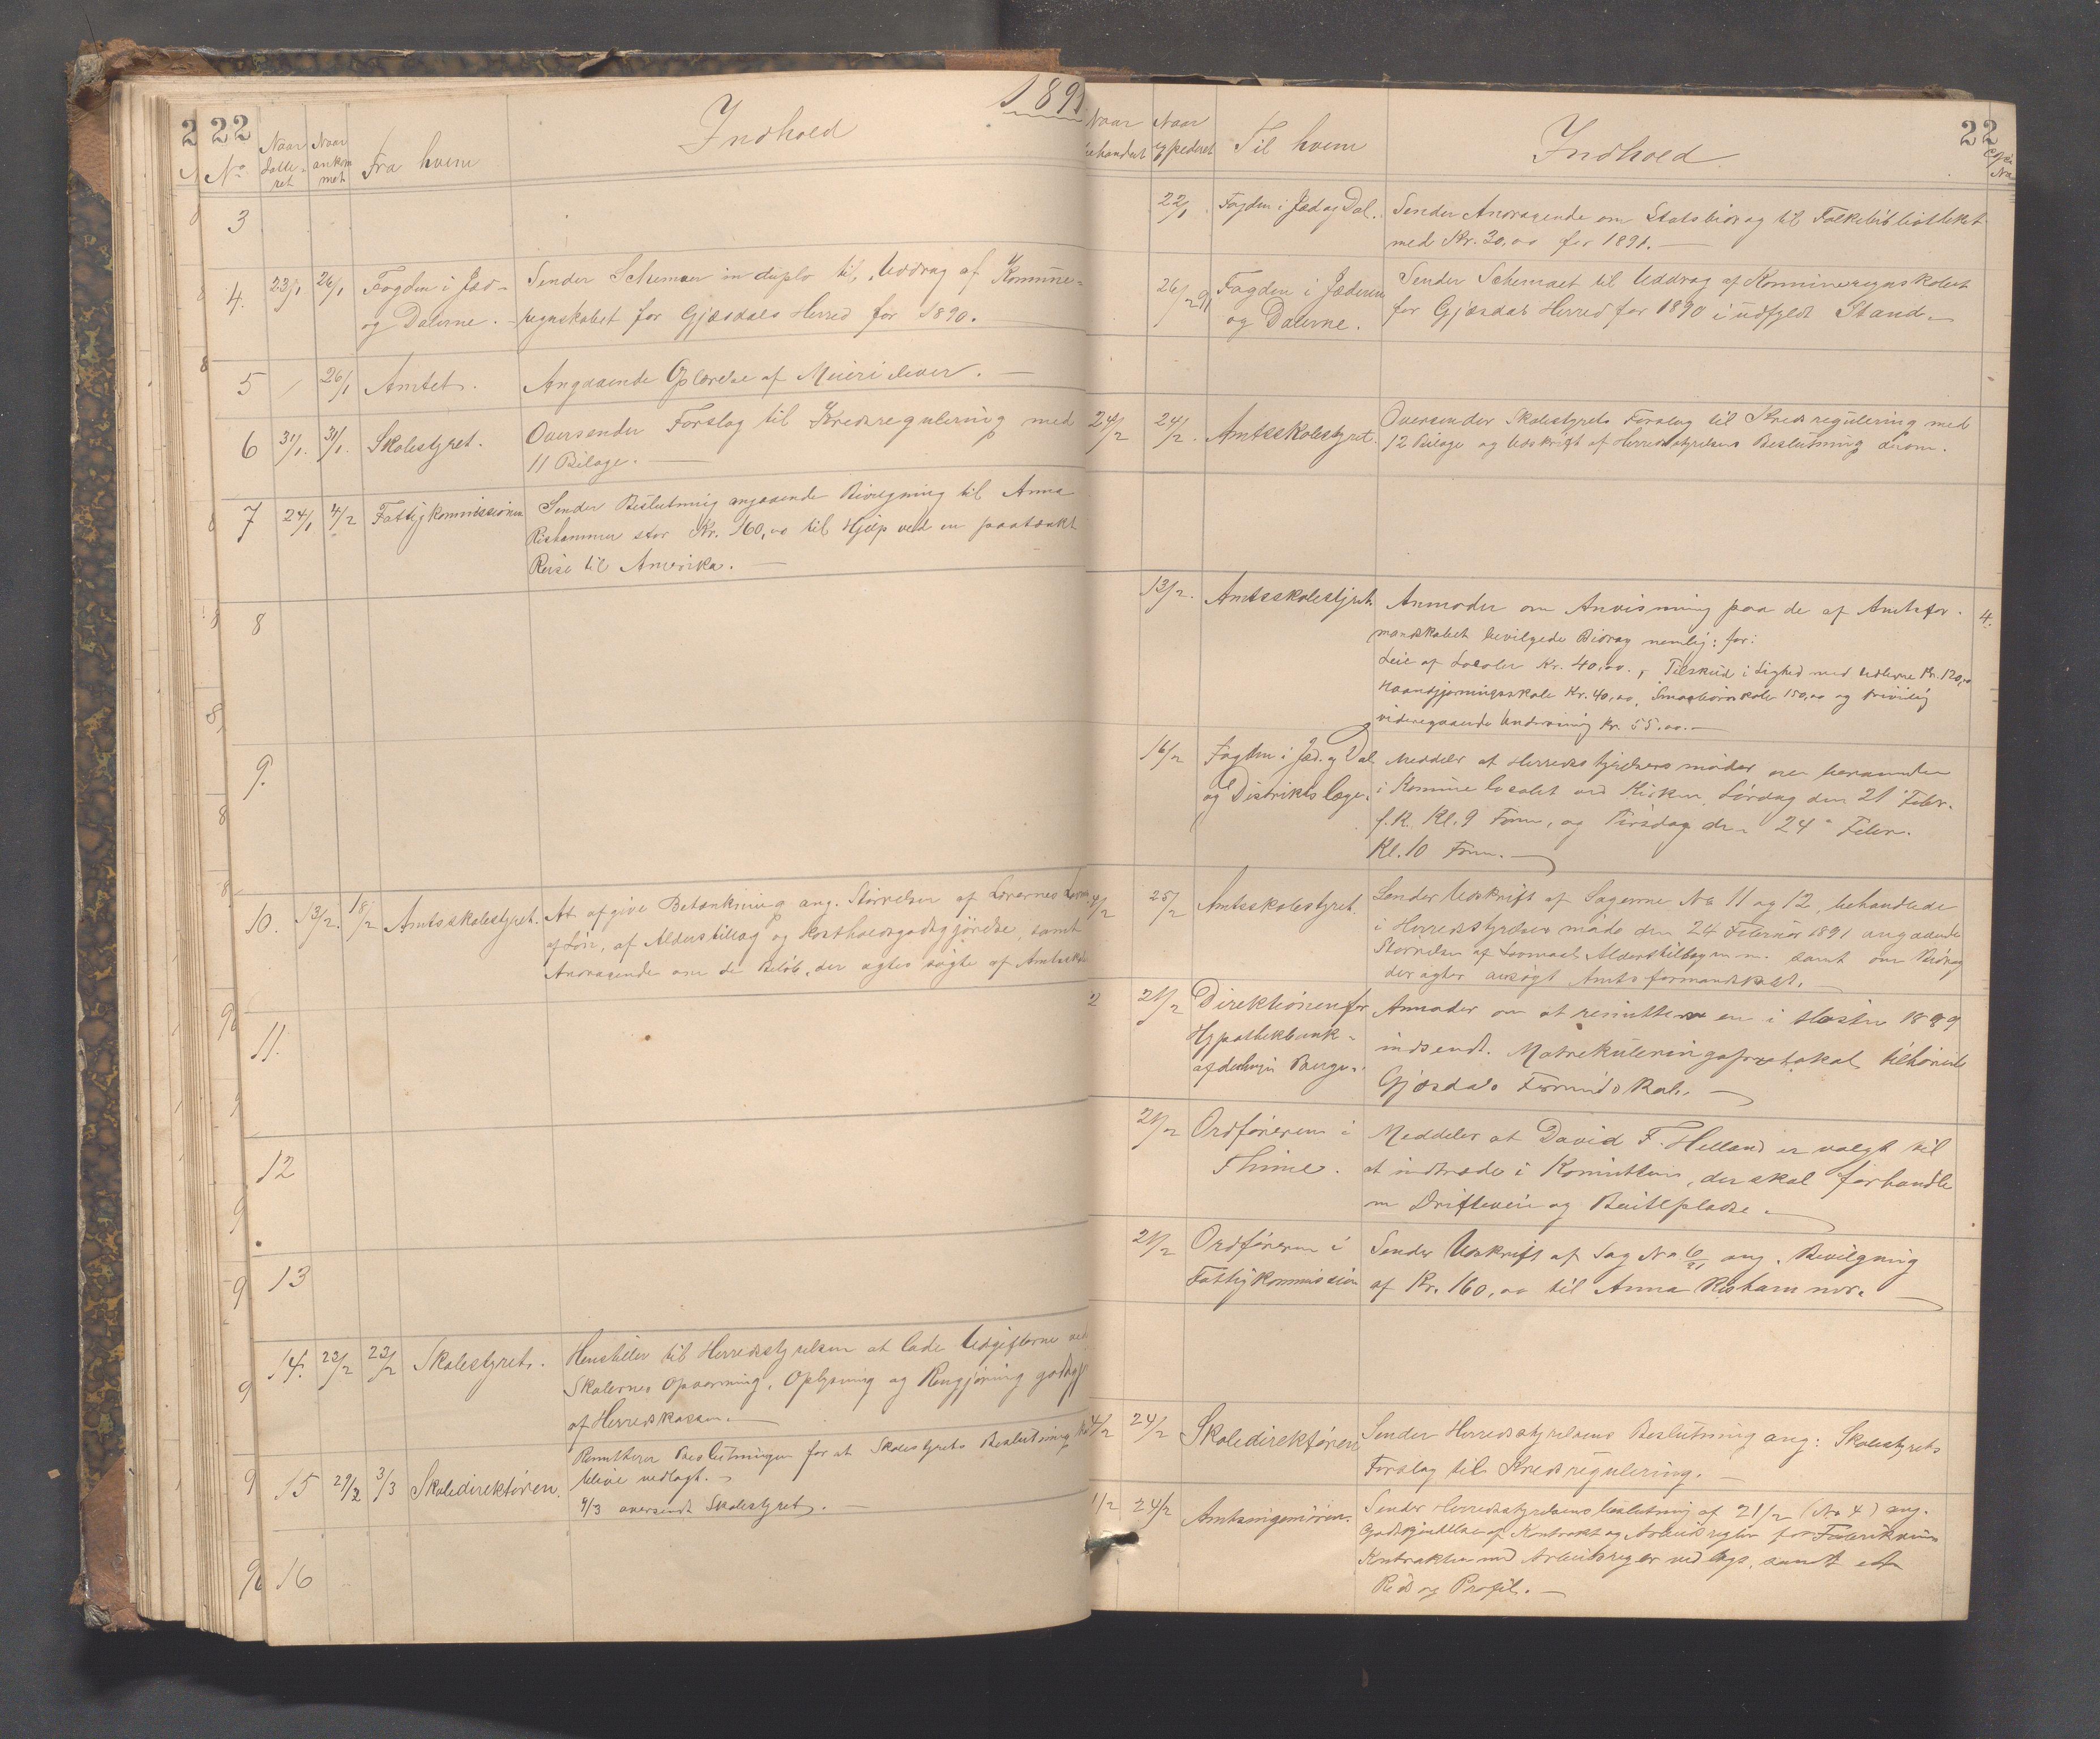 22
1891
No
Naar datte-ret
Naar ankommet
Fra hvem
Indhold
3
4. 23/1 26/1 Fogden i Jæd- Sender Schemaer in duplo til Uddrag af Kommune-
og Dalerne. regnskabet for Gjæsdals Herred for 1890.
5 26/1 Amtet. Angaaende Oplærelse af Meieri elever.
6 31/1. 31/1. Skolestyret. Oversender Forslag til Kredsregulering med
11 Bilage.
7 24/1 4/2 Fattigkommissionen Sender Beslutning angaaende Bevilgning til Anna
Rishammer stor Kr. 160,00 til Hjelp ved en paatænkt
Reise til Amerika.
8
9.
10. 13/2. 18/2 Amtsskolestyret. At afgive Betænkning ang. Störrelsen af Lærernes
af Löн, af Alderstillæg og Kostholdsgodtgjörelse, samt
Andragende om de Belöb, der agtes sögte af
11.
12
13
14. 22/2 22/2 Skolestyret. Henstiller til Herredsstyrelsen at lade Udgifterne ved
Skolernes Opvarmning, Oplysning og Rengjöring
af Herredskassen.
15 27/2 3/3 Skoledirektören. Remitterer Beslutningen for at Skolestyrets Beslutning
blive vedlagt.
4/3 oversendt Skolestyret.
16
22
Naar behandlet
Naar expederet
Til hvem
Indhold
22/1 Fogden i Jæd og Dal. Sender Andragende om Statsbidrag til Folkebibliotheket
med Kr. 30,00 for 1891.
26/2 91 Fogden i Jæderen Sender Schemaet til Uddrag af Kommuneregnskabet
og Dalerne. for Gjæsdals Herred for 1890 i udfyldt Stand.
24/2 24/2. Amtsskolestyret. Oversender Skolestyrets Forslag til Kredsregulering med
12 Bilage og Udskrift af Herredsstyrelsens Beslutning derom.
13/2. Amtsskolestyret Anmoder om Anvisning paa de af Amtsfor- 4.
mandskabet bevilgede Bidrag nemlig: for:
Leie af Localer Kr. 40,00., Tilskud i Lighed med Udlerne Kr. 120,00
Haandgjerningsskole Kr. 40,00, Smaabörnskole 150,00 og frivillig
videregaaende Undervisning Kr. 55.00.
16/2 Fogden i Jæd. og Dal. Meddeler at Herredsstyrelsens möder ere berammede
og Distriktslæge. i Kommunelocalet ved Kirken, Lördag den 21 Febr.
f.K. Kl. 9 Form, og Tirsdag den 24 Febr.
Kl. 10 Form.
25/2 Amtsskolestyret. Sender Udskrift af Sagerne No 11 og 12, behandlede
i Herredsstyrelses möde den 24 Februar 1891 angaaende
Störrelsen af Alderstillæg m.m. samt om Bidrag
der agter ansögt Amtsformandskabet.
21/2 Direktionen for Anmoder om at remittere en i Høsten 1889
Hypothekbank- indsendt Matrikuleringsprotokol tilhörende
afdeling i Bergen. Gjæsdals Formandskab.
21/2 Ordföreren i Meddeler at David F. Helland er valgt til
Thime. at indtræde i Komitteen, der skal forhandle
om Driftevei og Beitepladse.
21/2 Ordföreren i Sender Udskrift af Sag No 6/91 ang. Bevilgning
Fattigkommission af Kr. 160,00 til Anna Rishammer.
24/2 Skoledirektören Sender Herredsstyrelsens Beslutning ang: Skolestyrets
Forslag til Kredsregulering.
24/2 Amtsingeniören. Sender Herredsstyrelsens beslutning af 21/2 (No 4) ang.
Godkjendelse af Kontrakt og Arbeidsregler for
Kontrakten med Arbeidsregler ved lags, samt et
Rids og Profil.